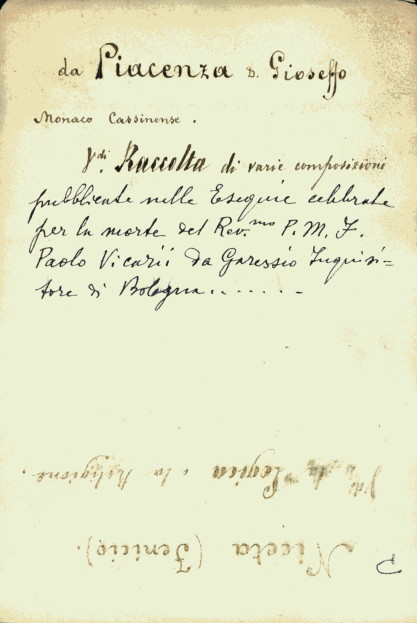 da Piacenza D. Gioseffo
Monaco Cassinense.
V.di Raccolta di varie composizioni
pubblicate nelle Esequie celebrate
per la morte del Rev.mo P. M. F.
Paolo Vicarii da Garessio Inquisi=
tore di Bologna.......
Niceta (Fenicio).
V.di la Logica e la Religione.